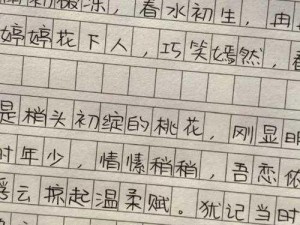 春水初生，冉
婷婷花下人，巧笑嫣然，
是梢头初绽的桃花，刚显明
时年少，情愫稍稍，吾恋依
云掠起温柔赋。犹记当时